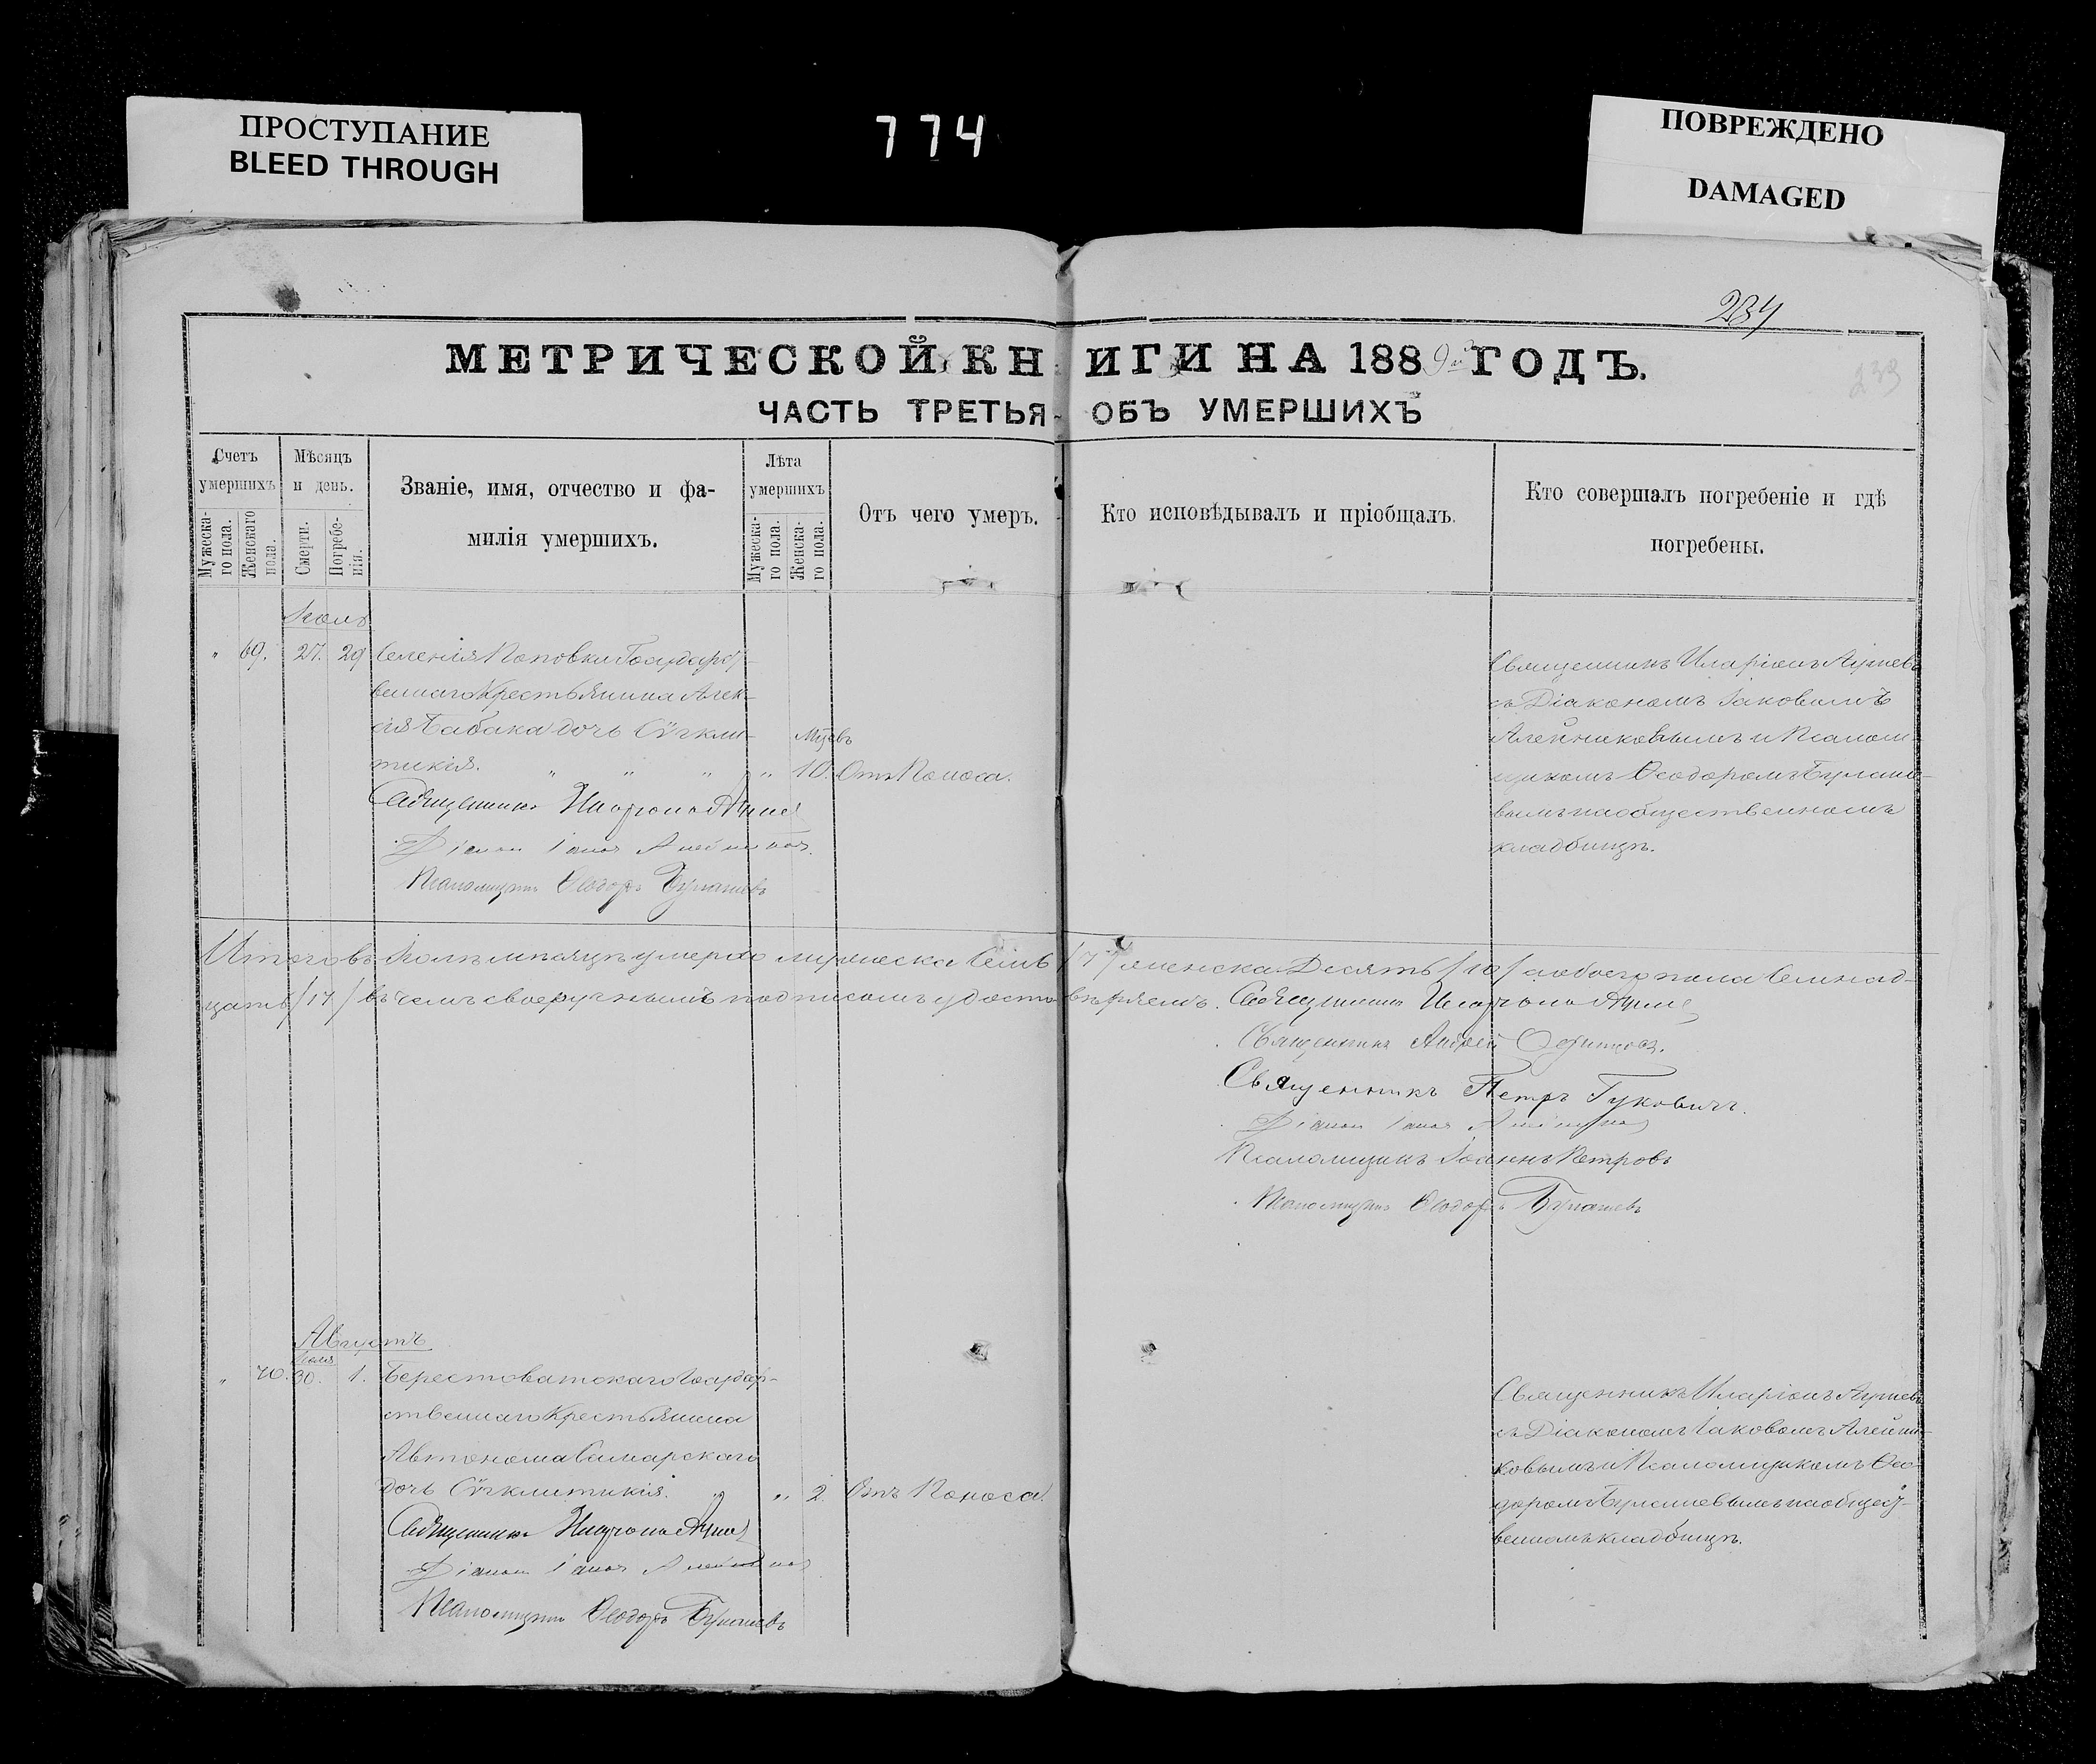 ПРОСТУПАНИЕ
BLEED THROUGH
774
ПОВРЕЖДЕНО
DAMAGED
234
233
МЕТРИЧЕСКОЙ КНИГИ НА 1889й ГОДЪ.
ЧАСТЬ ТРЕТЬЯ ОБЪ УМЕРШИХЪ
Счетъ умершихъ
Мужеска-го пола.
Женскаго пола.
Мѣсяцъ и день.
Смерти.
Погребе-нія.
Званіе, имя, отчество и фа-
милія умершихъ.
Лѣта умершихъ
Мужеска-го пола.
Женска-го пола.
Отъ чего умеръ.
Кто исповѣдывалъ и пріобщалъ.
Кто совершалъ погребеніе и гдѣ
погребены.
Іюль
" 69. 27. 29 Селенія Поповки Государст-
веннаго Крестьянина Алек-
сія Бабака дочь Сѵнкли-
тикія. " " " " Мцевъ 10. Отъ Поноса.
Священникъ Иларіонъ
Діаконъ Іаковъ Алейниковъ
Псаломщикъ Ѳеодоръ Булашевъ
Священникъ Иларіонъ
съ Діакономъ Іаковомъ
Алейниковымъ и Псалом
щикомъ Ѳеодоромъ Булаше-
вымъ на общественномъ
кладбищѣ.
Итого въ Іюлѣ мѣсяцѣ умерло мужеска Семь /7/ женска Десять /10/ а обоего пола Семнад-
цать /17/ въ чемъ своеручнымъ подписомъ удостовѣряемъ. Священникъ Иларіонъ
Священникъ Андрей
Священникъ Петръ Гуковичъ.
Діаконъ Іаковъ Алейниковъ
Псаломщикъ Іоаннъ Петровъ
Псаломщикъ Ѳеодоръ Булашевъ
Августъ
Іюля
" 70. 30. 1. Берестоватскаго Государ-
ственнаго Крестьянина
Автонома Самарскаго
дочь Сѵнклитикія. " " 2. Отъ Поноса.
Священникъ Иларіонъ
Діаконъ Іаковъ Алейниковъ
Псаломщикъ Ѳеодоръ Булашевъ
Священникъ Иларіонъ
съ Діакономъ Іаковомъ Алейни-
ковымъ и Псаломщикомъ Ѳео-
доромъ Булашевымъ на общест-
венномъ кладбищѣ.